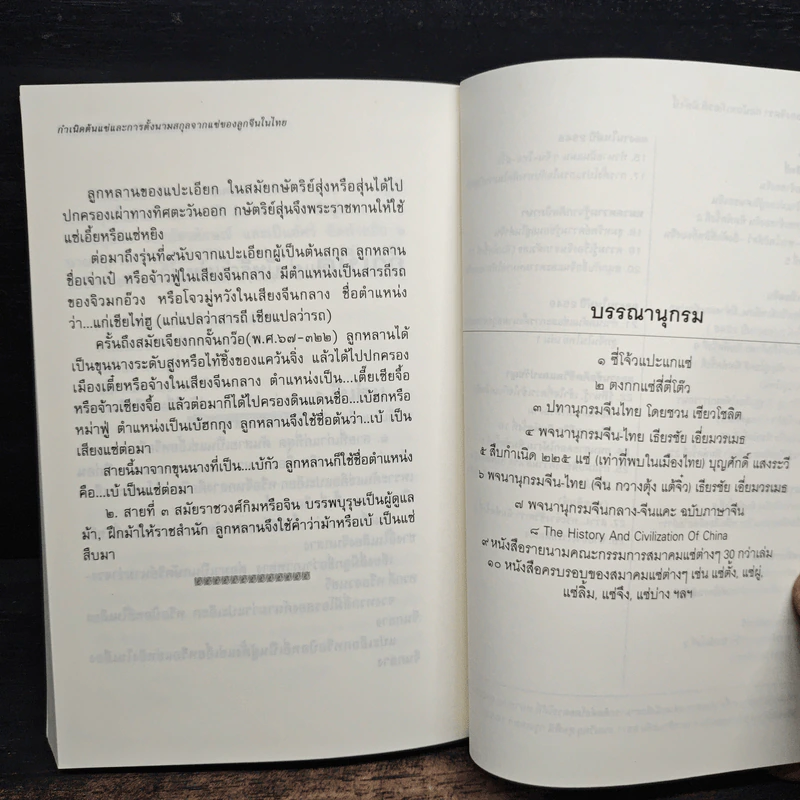 กำเนิดต้นแซ่และการตั้งนามสกุลจากแซ่ของลูกจีนในไทย
ลูกหลานของแปะเอียก ในสมัยกษัตริย์สุ่งหรือสุ่นได้ไป
ปกครองเผ่าทางทิศตะวันออก กษัตริย์สุ่นจึงพระราชทานให้ใช้
แซ่เอี้ยหรือแซ่หยิง
ต่อมาถึงรุ่นที่๙นับจากแปะเอียกผู้เป็นต้นสกุล ลูกหลาน
ชื่อเจ่าเป๋ หรือจ้าวฟู่ในเสียงจีนกลาง มีตำแหน่งเป็นสารถีรถ
ของจิวมกอ๊วง หรือโจวมู่หวังในเสียงจีนกลาง ชื่อตำแหน่ง
ว่า...แก่เซียไท่ฮู (แก่แปลว่าสารถี เซียแปลว่ารถ)
ครั้นถึงสมัยเจียงกกจั้นกว๊อ(พ.ศ.๖๗-๓๒๒) ลูกหลานได้
เป็นขุนนางระดับสูงหรือไท้ซิ้งของแคว้นจิ๋ง แล้วได้ไปปกครอง
เมืองเตี๋ยหรือจ้างในเสียงจีนกลาง ตำแหน่งเป็น...เตี๋ยเซียจื้อ
หรือจ้าวเชียงจื้อ แล้วต่อมาก็ได้ไปครองดินแดนชื่อ...เบ้ฮกหรือ
หม่าฟู่ ตำแหน่งเป็นเบ้ฮกกุง ลูกหลานจึงใช้ชื่อต้นว่า..เบ้ เป็น
เสียงแซ่ต่อมา
สายนี้มาจากขุนนางที่เป็น...เบ้กัว ลูกหลานก็ใช้ชื่อตำแหน่ง
คือ...เบ้ เป็นแซ่ต่อมา
๒. สายที่ ๓ สมัยราชวงศ์กิมหรือจิน บรรพบุรุษเป็นผู้ดูแล
ม้า, ฝึกม้าให้ราชสำนัก ลูกหลานจึงใช้คำว่าม้าหรือเบ้ เป็นแซ่
สืบมา
บรรณานุกรม
๑ ซี่โจ้วแปะแกแซ่
๒ ตงกกแซ่สี่ตี่โต๊ว
๓ ปทานุกรมจีนไทย โดยชวน เซียวโชลิต
๔ พจนานุกรมจีน-ไทย เธียรชัย เอี่ยมวรเมธ
๕ สืบกำเนิด ๒๒๕ แซ่ (เท่าที่พบในเมืองไทย) บุญศักดิ์ แสงระวี
๖ พจนานุกรมจีน-ไทย (จีน กวางตุ้ง แต้จิ๋ว) เธียรชัย เอี่ยมวรเมธ
๗ พจนานุกรมจีนกลาง-จีนแคะ ฉบับภาษาจีน
๘ The History And Civilization Of China
๙ หนังสือรายนามคณะกรรมการสมาคมแซ่ต่างๆ 30 กว่าเล่ม
๑๐ หนังสือครบรอบของสมาคมแซ่ต่างๆ เช่น แซ่ตั้ง, แซ่ผู่,
แซ่ลิ้ม, แซ่จึง, แซ่บ่าง ฯลฯ